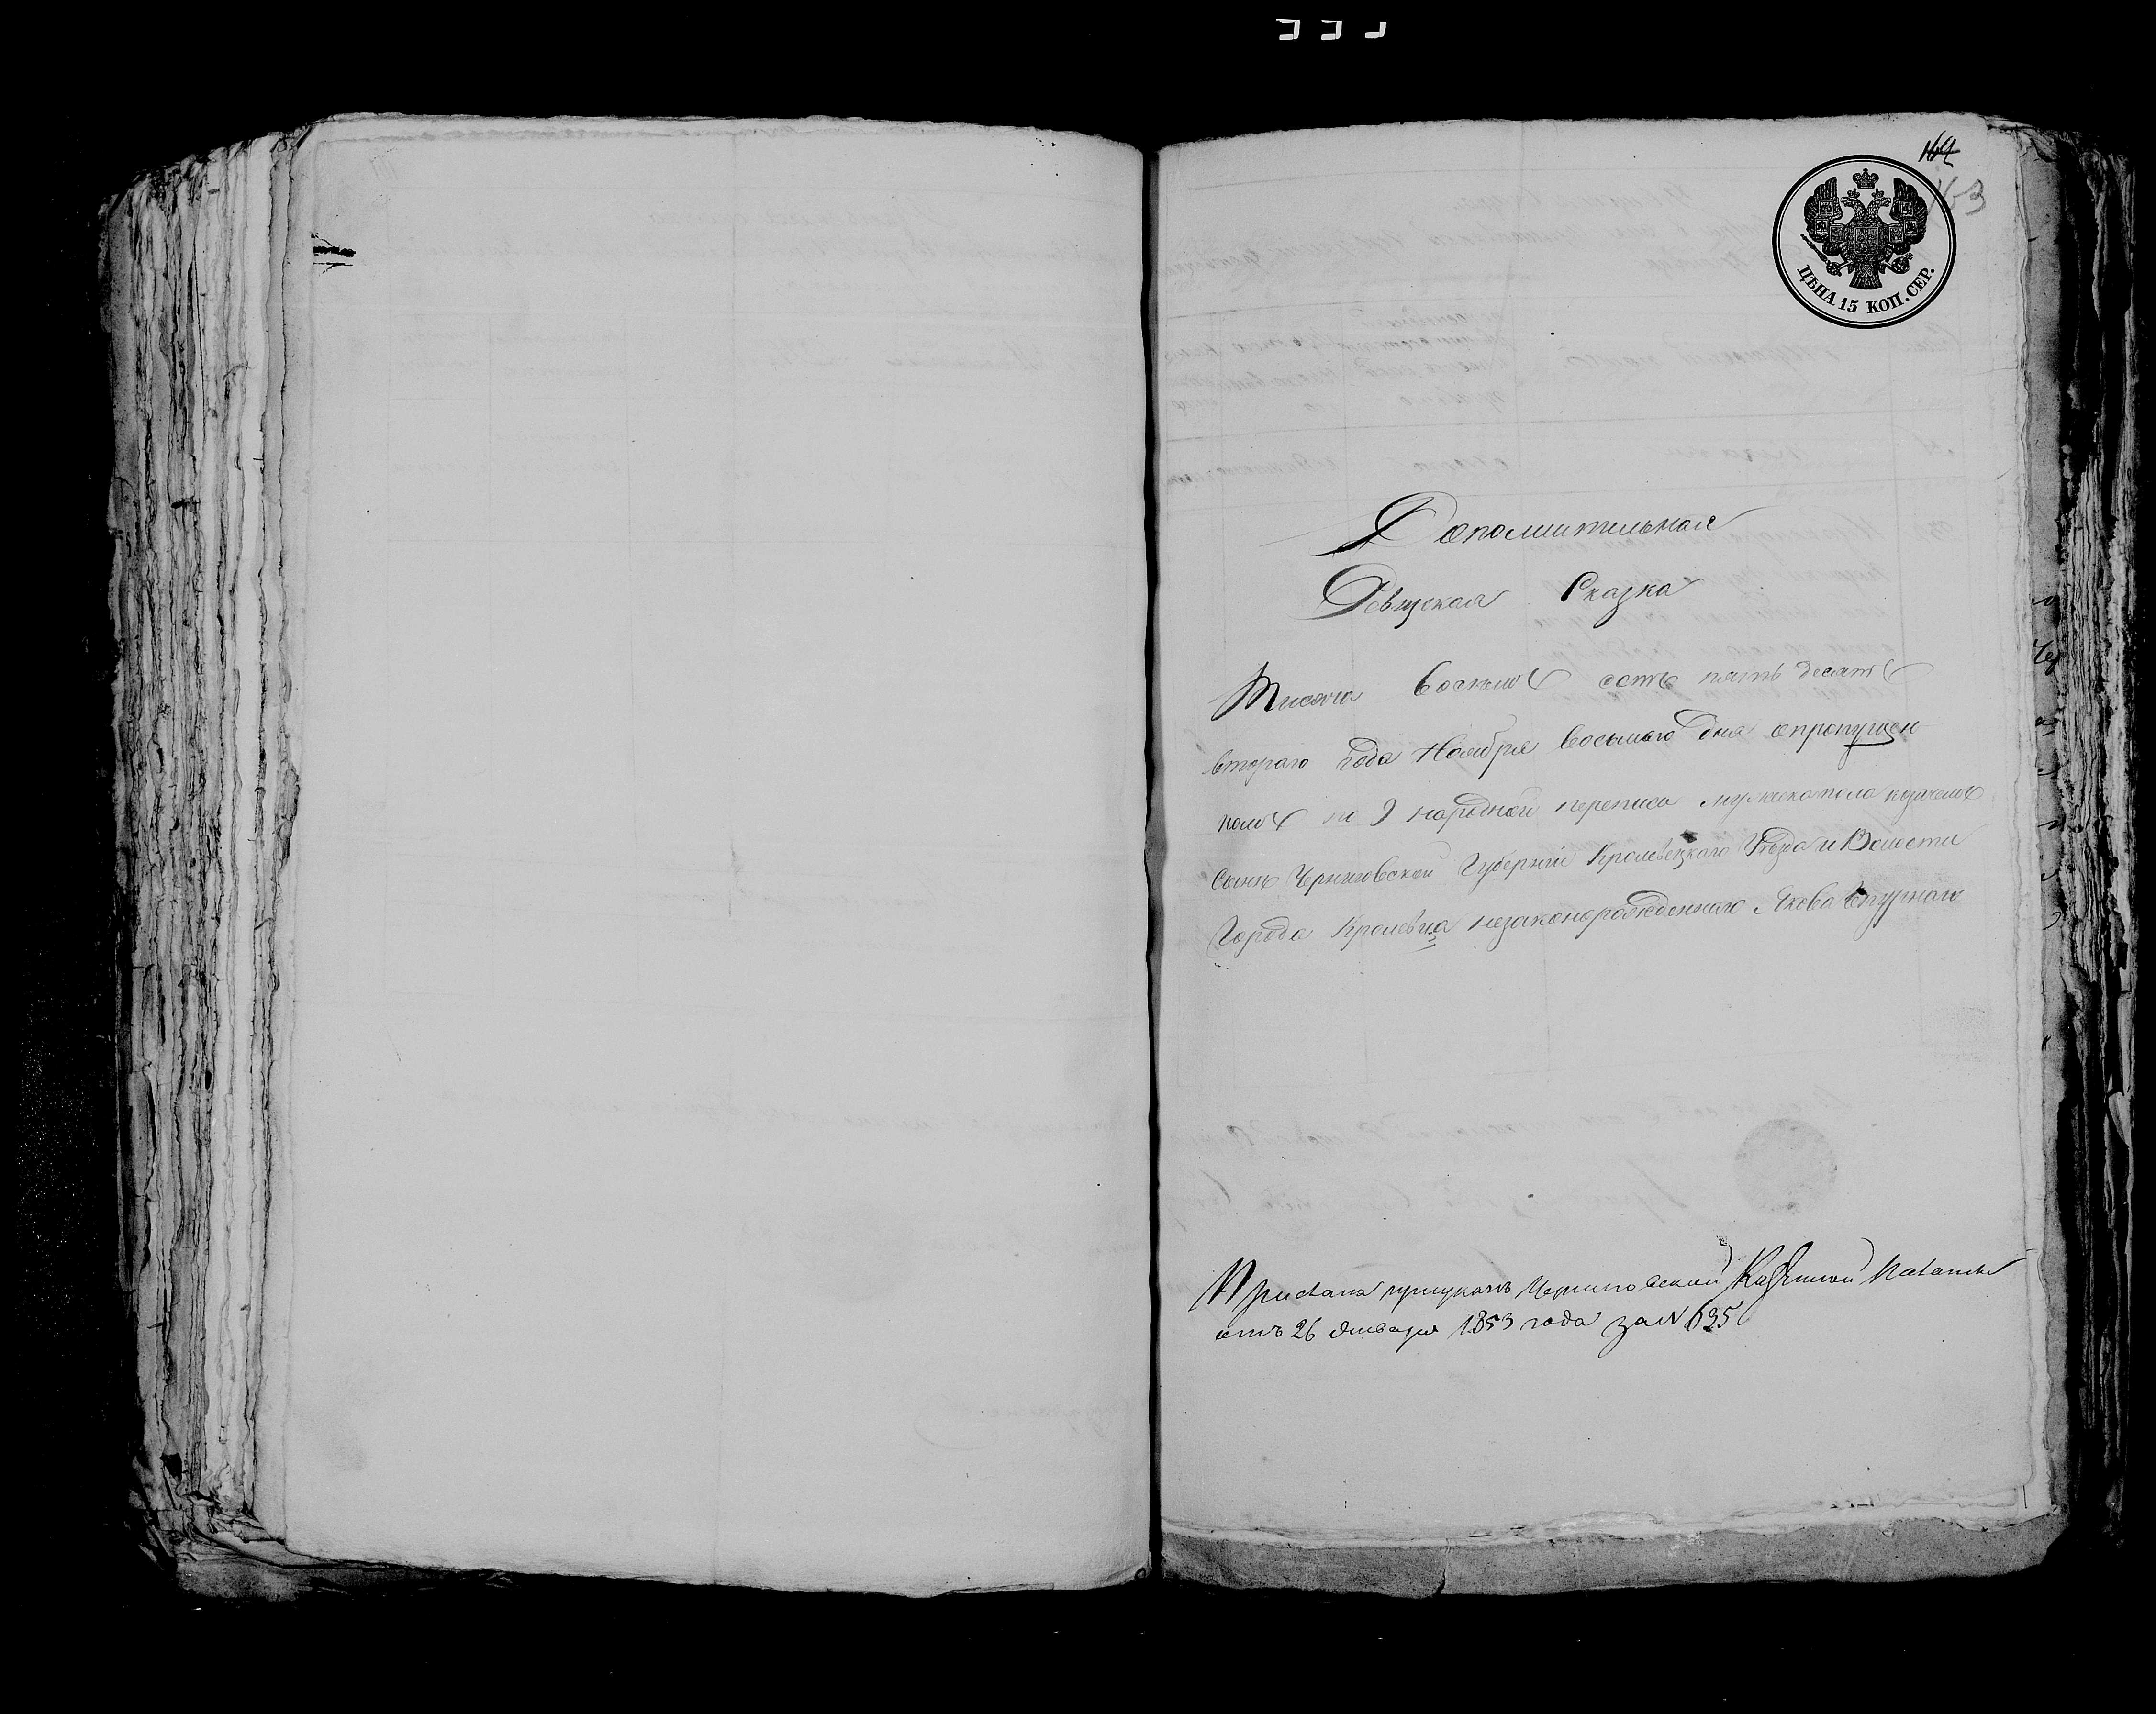 164
163
ЦѢНА 15 КОП. СЕР.
Дополнительная
Ревизская Сказка
Тисяча восемъ сотъ пять десятъ
втораго года Ноября восьмого дня опропущен
номъ по 9 народной переписи мужеска пола козачемъ
сынѣ Черниговской Губерніи Кролевецкаго Уѣзда и Волости
Города Кролевца незаконорожденнаго Якова
Прислана приуказѣ Черниговской Казенной Палаты
отъ 26 Января 1853 года за N 635